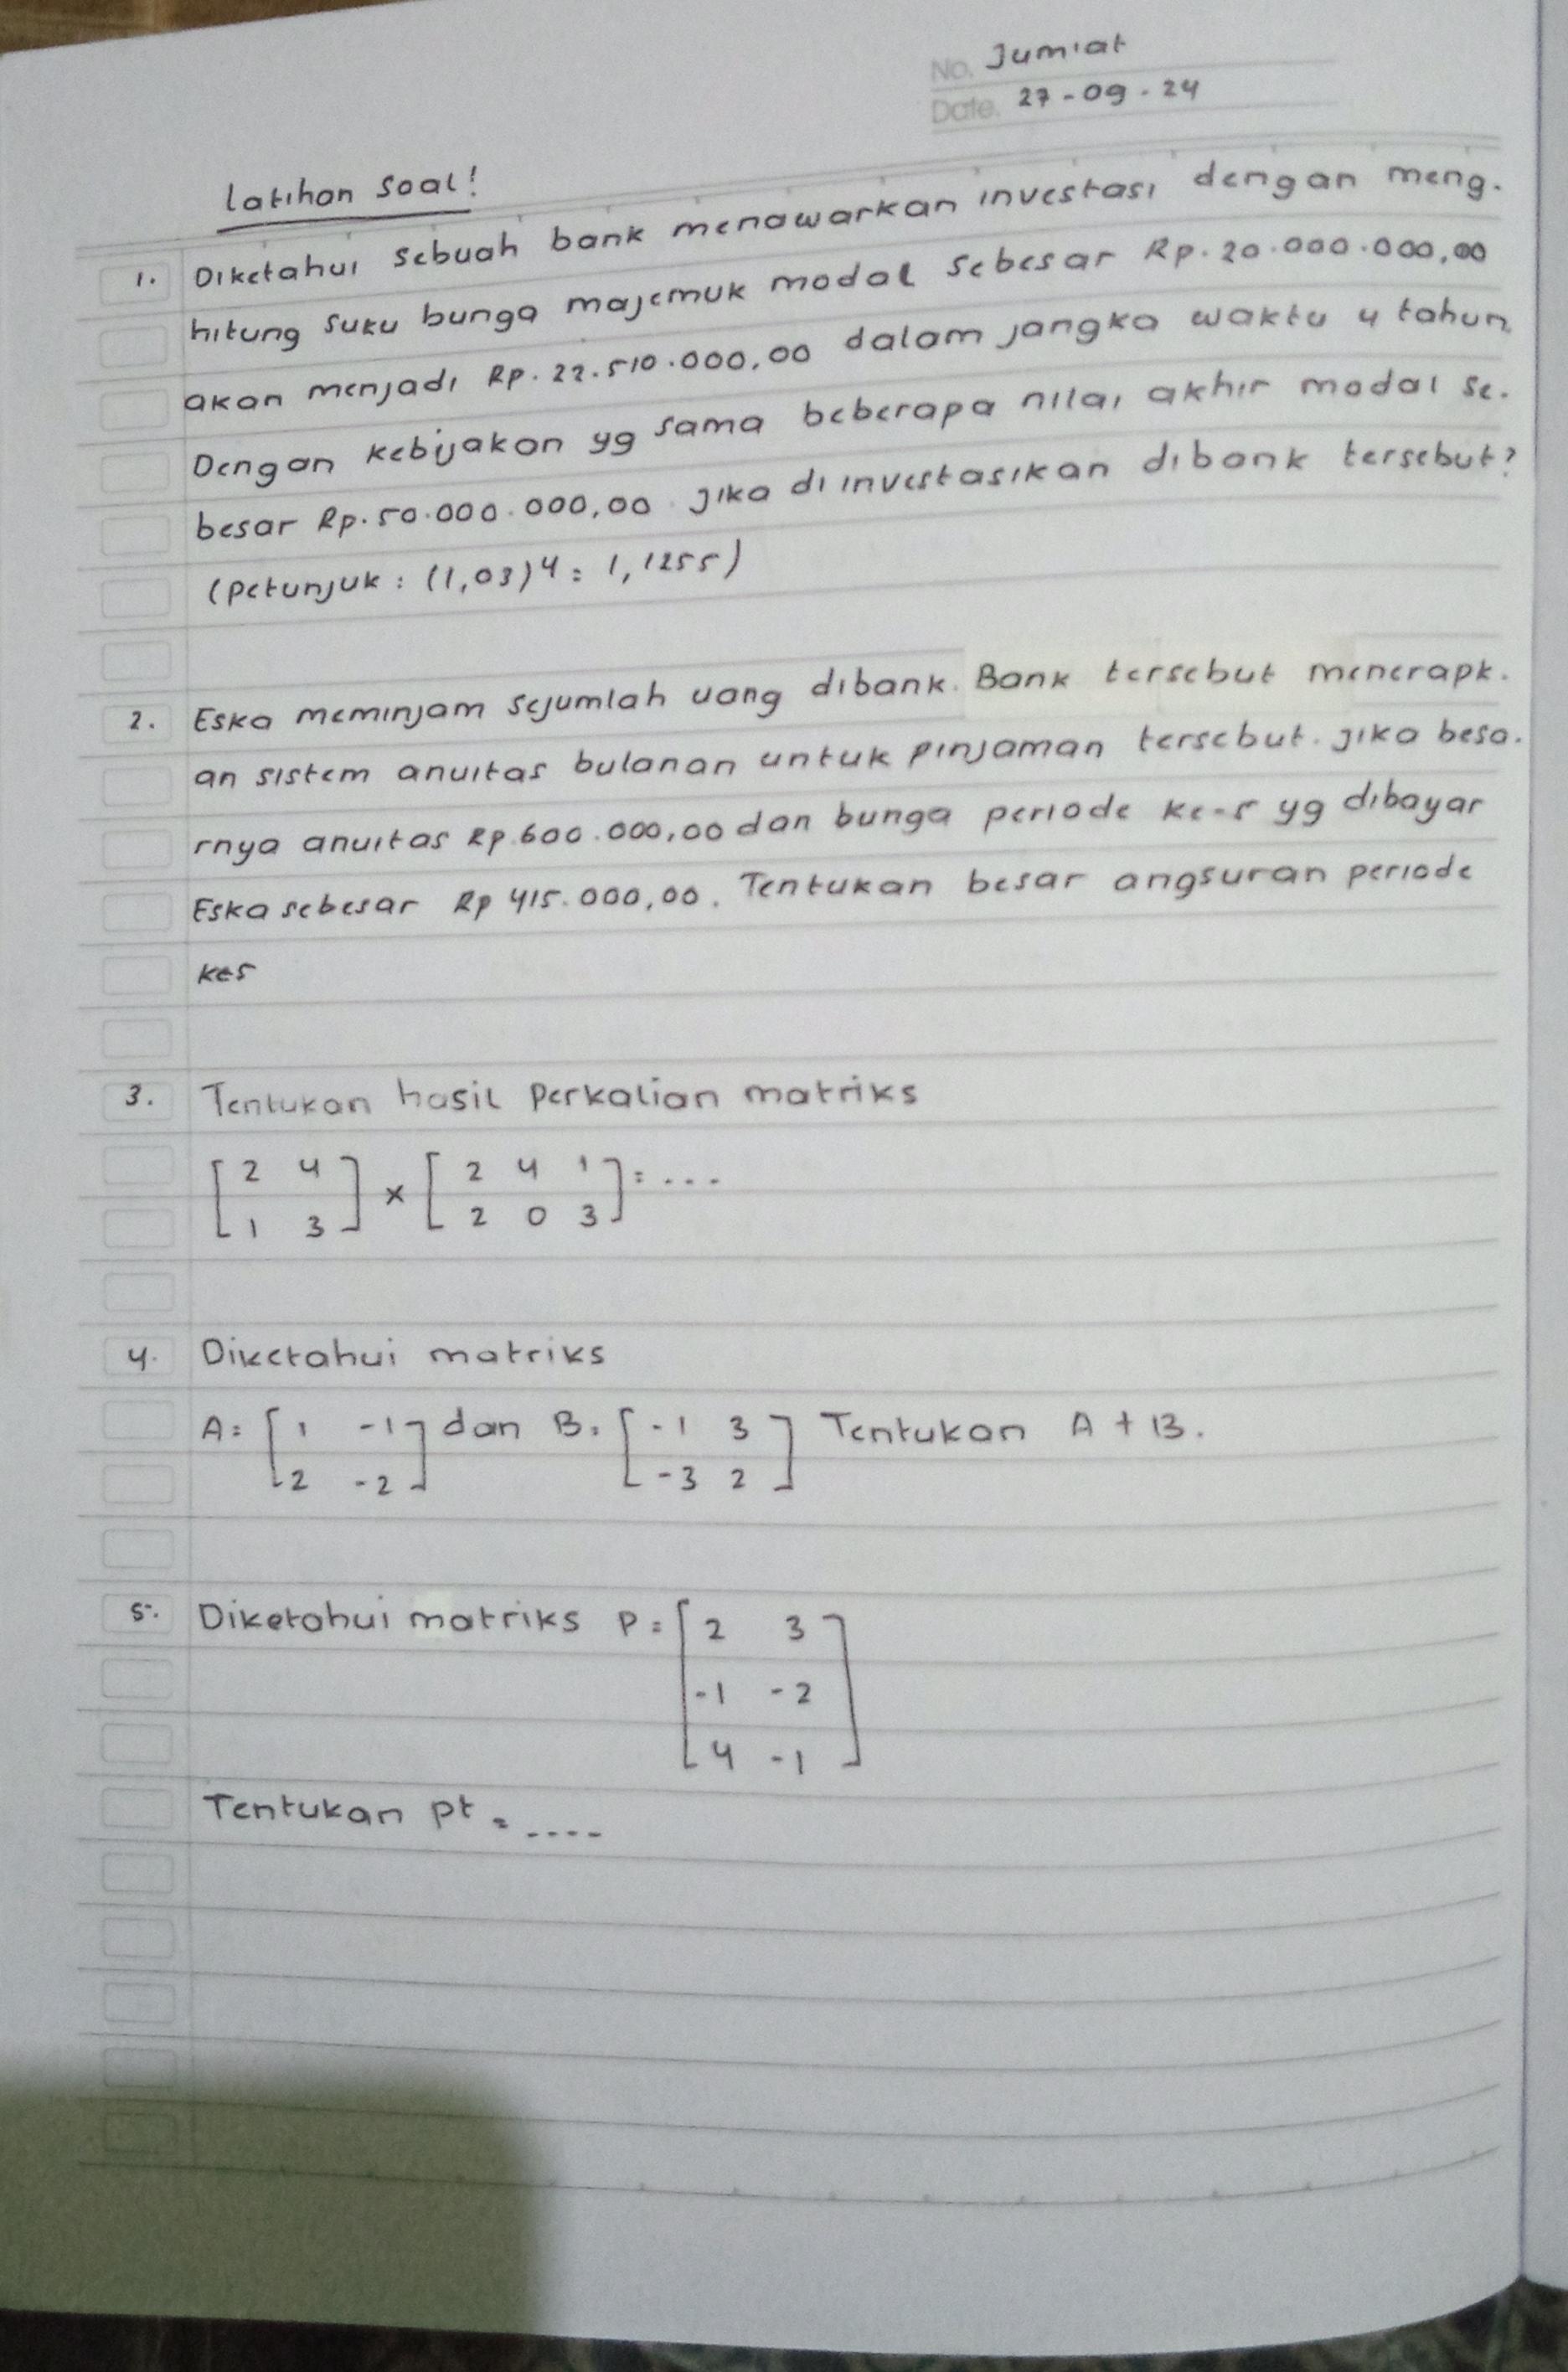 No. Jum'at
Date. 27-09-24
Latihan soal!
1. Diketahui sebuah bank menawarkan investasi dengan meng-
hitung suku bunga majemuk modal sebesar Rp. 20.000.000,00
akan menjadi Rp. 22.510.000,00 dalam jangka waktu 4 tahun
Dengan kebijakan yg sama beberapa nilai akhir modal se-
besar Rp. 50.000.000,00 jika di investasikan dibank tersebut?
(Petunjuk : (1,03)4 = 1,1255)
2. Eska meminjam sejumlah uang dibank. Bank tersebut menerapk-
an sistem anuitas bulanan untuk pinjaman tersebut. jika besa-
rnya anuitas Rp.600.000,00 dan bunga periode ke-5 yg dibayar
Eska sebesar Rp 415.000,00. Tentukan besar angsuran periode
ke5
3. Tentukan hasil perkalian matriks
[ 2 4 ] × [ 2 4 1 ] = ...
[ 1 3 ] [ 2 0 3 ]
4. Diketahui matriks
A = [ 1 -1 ] dan B = [ -1 3 ] Tentukan A + B.
[ 2 -2 ] [ -3 2 ]
5. Diketahui matriks P = [ 2 3 ]
-1 -2
[ 4 -1 ]
Tentukan Pt = ....